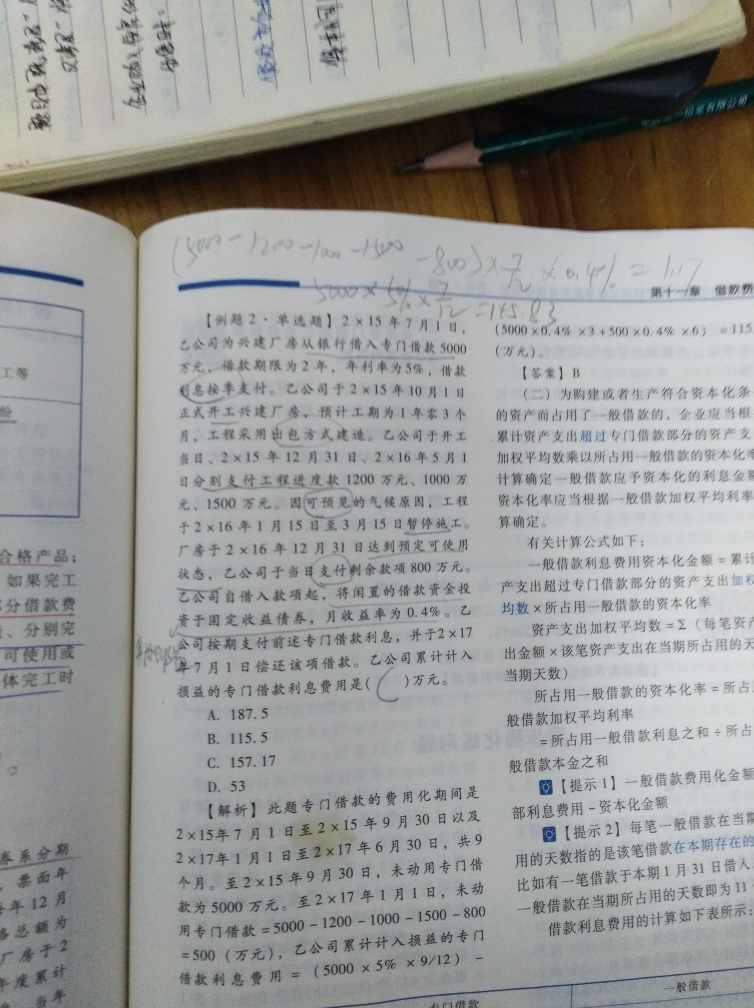 (5000-1200-1000-1500-800)×7/12×0.4%=1.17
5000×5%×7/12=145.83
第十一章 借款费
【例题2·单选题】2×15年7月1日，
乙公司为兴建厂房从银行借入专门借款5000
万元，借款期限为2年，年利率为5%，借款
利息按季支付。乙公司于2×15年10月1日
正式开工兴建厂房，预计工期为1年零3个
月，工程采用出包方式建造。乙公司于开工
当日、2×15年12月31日、2×16年5月1
日分别支付工程进度款1200万元、1000万
元、1500万元。因可预见的气候原因，工程
于2×16年1月15日至3月15日暂停施工。
厂房于2×16年12月31日达到预定可使用
状态，乙公司于当日支付剩余款项800万元。
乙公司自借入款项起，将闲置的借款资金投
资于固定收益债券，月收益率为0.4%。乙
公司按期支付前述专门借款利息，并于2×17
年7月1日偿还该项借款。乙公司累计计入
损益的专门借款利息费用是( )万元。
A. 187.5
B. 115.5
C. 157.17
D. 53
【解析】此题专门借款的费用化期间是
2×15年7月1日至2×15年9月30日以及
2×17年1月1日至2×17年6月30日，共9
个月。至2×15年9月30日，未动用专门借
款为5000万元。至2×17年1月1日，未动
用专门借款=5000-1200-1000-1500-800
=500（万元），乙公司累计计入损益的专门
借款利息费用=（5000×5%×9/12）-
(5000×0.4%×3+500×0.4%×6)=115
(万元)。
【答案】B
（二）为购建或者生产符合资本化条
的资产而占用了一般借款的，企业应当根
累计资产支出超过专门借款部分的资产支
加权平均数乘以所占用一般借款的资本化率
计算确定一般借款应予资本化的利息金额
资本化率应当根据一般借款加权平均利率
算确定。
有关计算公式如下：
一般借款利息费用资本化金额=累计
产支出超过专门借款部分的资产支出加权
均数×所占用一般借款的资本化率
资产支出加权平均数=Σ（每笔资产
出金额×该笔资产支出在当期所占用的天
当期天数）
所占用一般借款的资本化率=所占
般借款加权平均利率
=所占用一般借款利息之和÷所占
般借款本金之和
【提示1】一般借款费用化金额
部利息费用-资本化金额
【提示2】每笔一般借款在当期
用的天数指的是该笔借款在本期存在的
比如有一笔借款于本期1月31日借入
一般借款在当期所占用的天数即为11
借款利息费用的计算如下表所示：
专门借款
一般借款
工等
合格产品；
如果完工
部分借款费
、分别完
可使用或
体完工时
券系分期
，票面年
年12月
格总额为
厂房于2
年度累计
当年